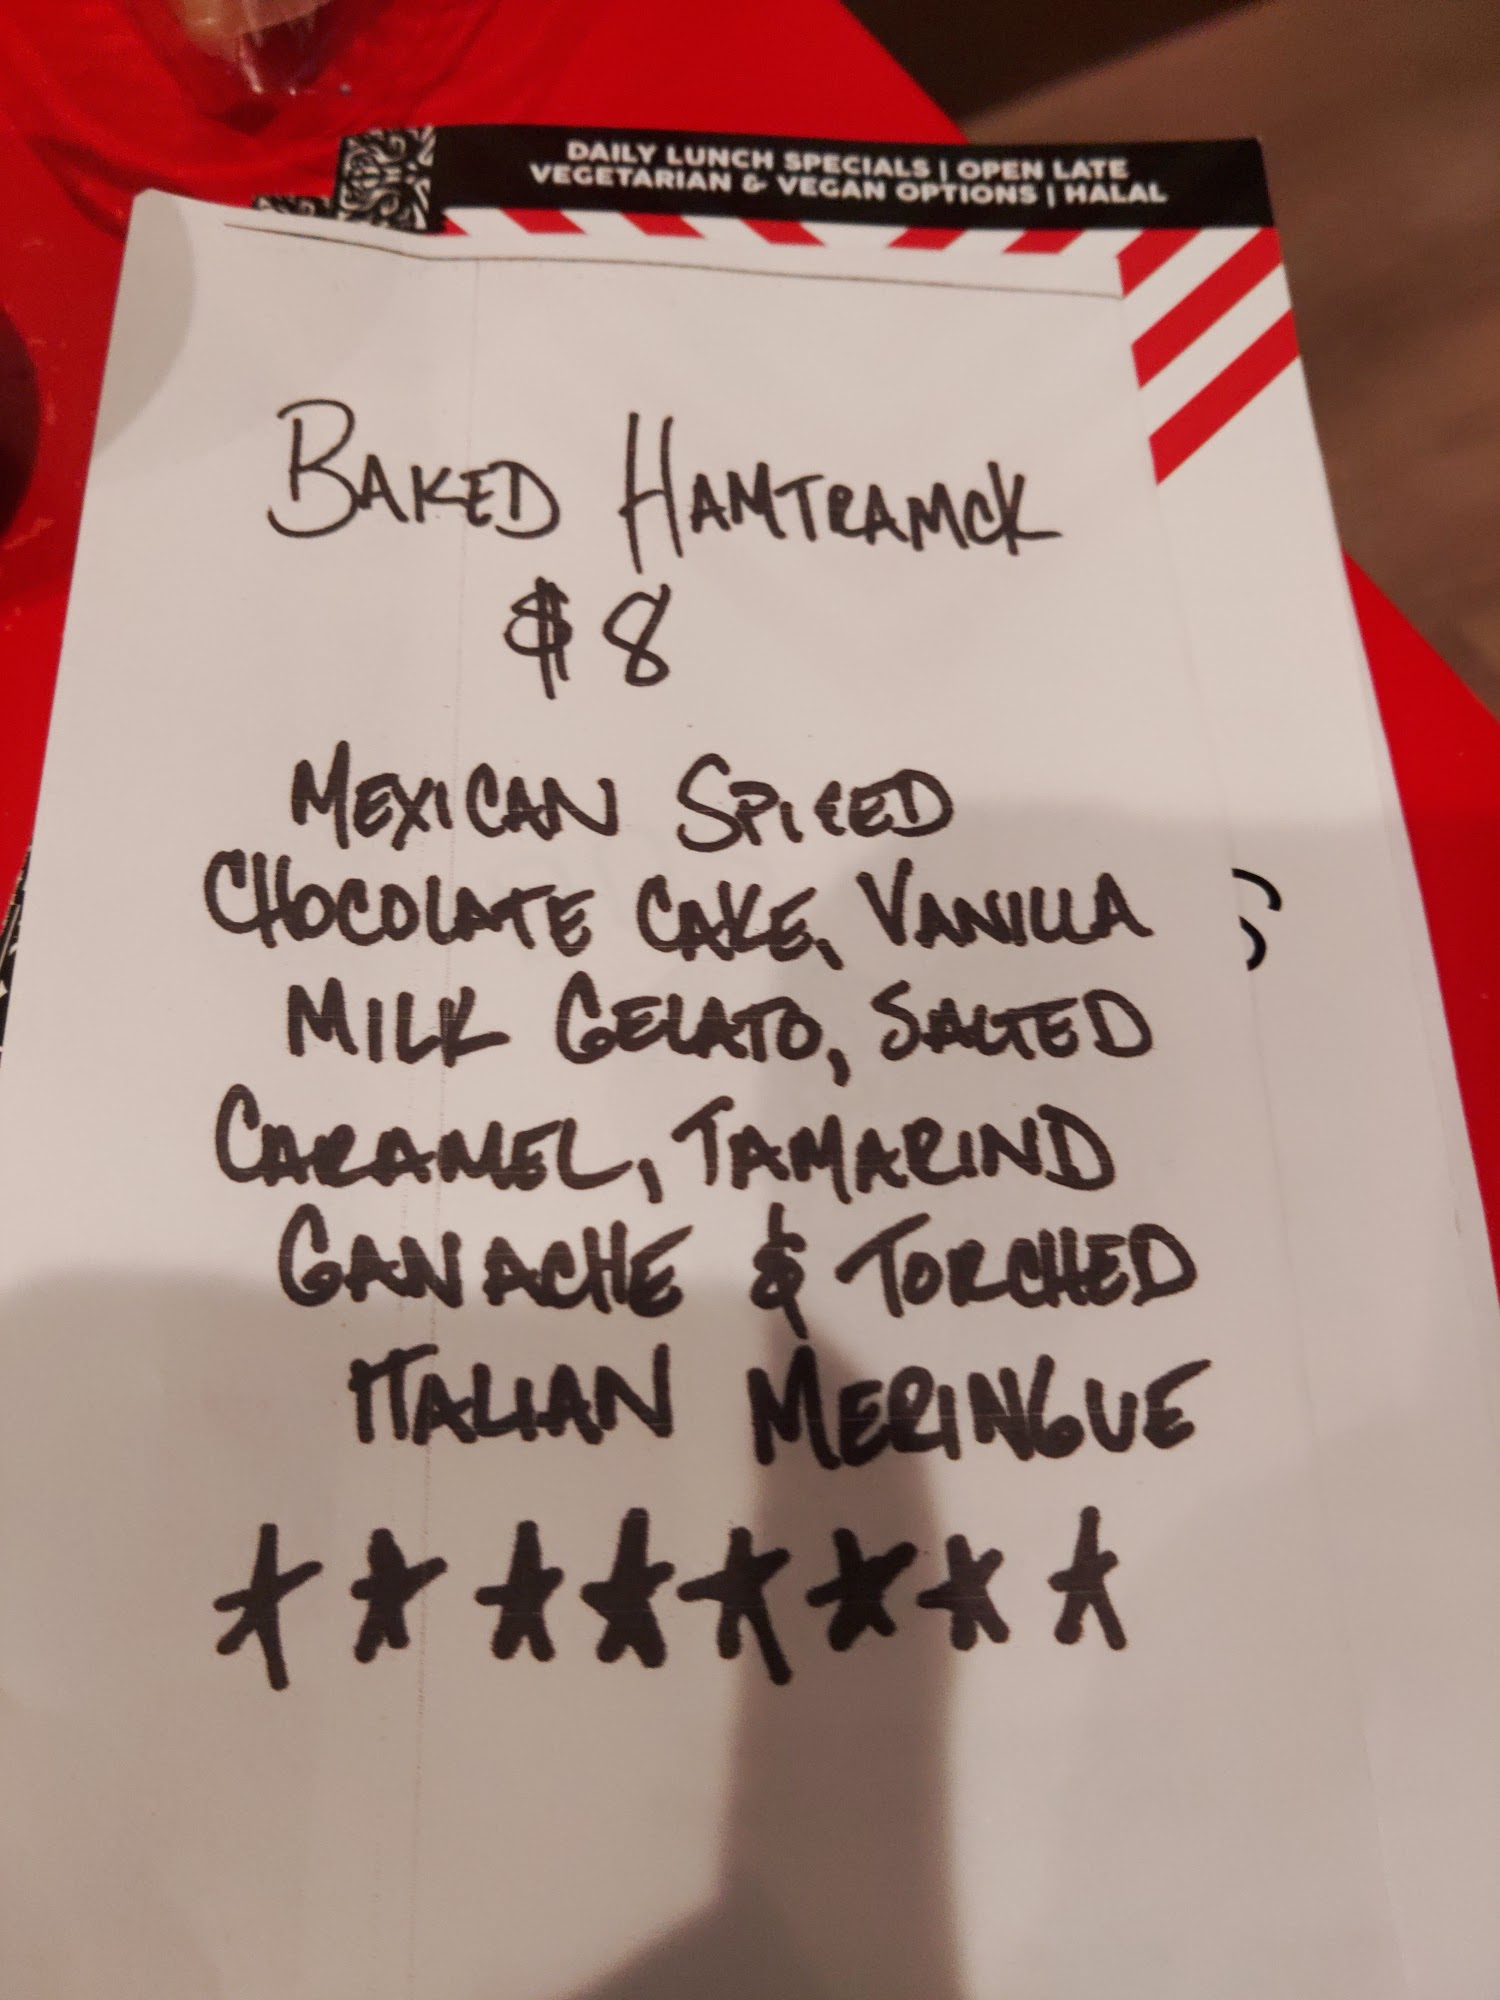 DAILY LUNCH SPECIALS | OPEN LATE
VEGETARIAN & VEGAN OPTIONS | HALAL
BAKED HAMTRAMCK
$8
MEXICAN SPICED
CHOCOLATE CAKE, VANILLA
MILK GELATO, SALTED
CARAMEL, TAMARIND
GANACHE & TORCHED
ITALIAN MERINGUE